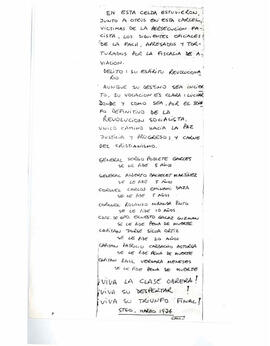 EN ESTA CELDA ESTUVIERON,
JUNTO A OTROS EN ESTA CARCEL,
VÍCTIMAS DE LA PERSECUCIÓN FAS-
CISTA, LOS SIGUIENTES OFICIALES
DE LA FACH, APRESADOS Y TOR-
TURADOS POR LA FISCALIA DE A-
VIACION.
DELITO: SU ESPÍRITU REVOLUCIONA
RIO
AUNQUE SU DESTINO SEA INCIER
TO, SU VOCACION ES CLARA: LUCHAR
DONDE Y COMO SEA, POR EL
DEFINITIVO DE LA
REVOLUCION SOCIALISTA,
UNICO CAMINO HACIA LA PAZ
JUSTICIA Y PROGRESO; Y CARNE
DEL CRISTIANISMO.
GENERAL SERGIO POBLETE GARCES
SE LE PIDE 5 AÑOS
GENERAL ALBERTO BACHELET MARTÍNEZ
SE LE PIDE AÑOS
CORONEL CARLOS OMINAMI DAZA
SE LE PIDE 5 AÑOS
CORONEL ROLANDO MIRANDA PINTO
SE LE PIDE 10 AÑOS
CDTE DE GPO ERNESTO GALAZ GUZMAN
SE LE PIDE PENA DE MUERTE
CAPITAN JORGE SILVA ORTIZ
SE LE PIDE 20 AÑOS
CAPITAN CARBACHO ASTORGA
SE LE PIDE PENA DE MUERTE
CAPITAN RAUL VERGARA MENESES
SE LE PIDE PENA DE MUERTE
¡VIVA LA CLASE OBRERA!
¡VIVA SU DESPERTAR!
¡VIVA SU TRIUNFO FINAL!
STGO, MARZO 1974